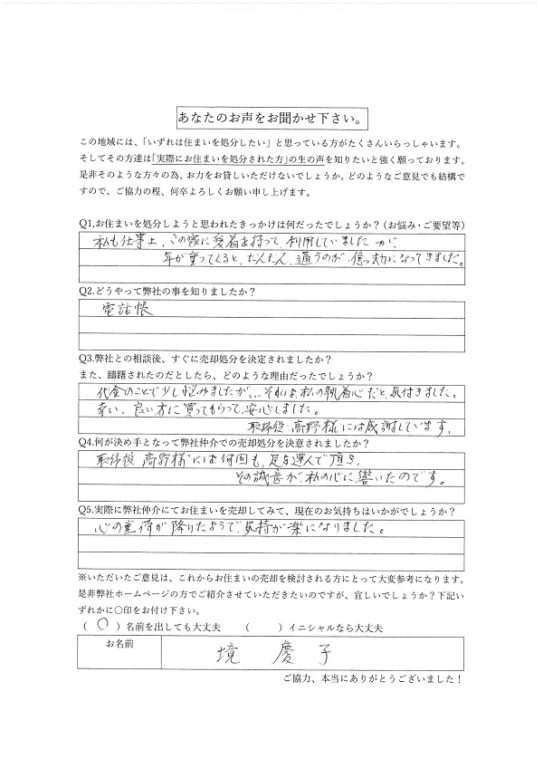 あなたのお声をお聞かせ下さい。
この地域には、「いずれは住まいを処分したい」と思っている方がたくさんいらっしゃいます。
そしてその方達は「実際にお住まいを処分された方」の生の声を知りたいと強く願っております。
是非そのような方々の為、お力をお貸しいただけないでしょうか。どのようなご意見でも結構で
すので、ご協力の程、何卒よろしくお願い申し上げます。
Q1,お住まいを処分しようと思われたきっかけは何だったでしょうか？（お悩み・ご要望等）
私も仕事上、この家に愛着を持って、利用していましたが、
年が重ってくると、だんだん、通うのが、億っ劫になってきました。
Q2.どうやって弊社の事を知りましたか？
電話帳
Q3.弊社との相談後、すぐに売却処分を決定されましたか？
また、躊躇されたのだとしたら、どのような理由だったでしょうか？
代金のことで少し悩みましたが、、それは私の執着心だと、気付きました。
幸い、良い方に買ってもらって、安心しました。
取締役 高野様には感謝しています。
Q4.何が決め手となって弊社仲介での売却処分を決意されましたか？
取締役 高野様には何回も、足を運んで頂き、
その誠意が私の心に響いたのです。
Q5.実際に弊社仲介にてお住まいを売却してみて、現在のお気持ちはいかがでしょうか？
心の重荷が降りたようで、気持が楽になりました。
※いただいたご意見は、これからお住まいの売却を検討される方にとって大変参考になります。
是非弊社ホームページの方でご紹介させていただきたいのですが、宜しいでしょうか？下記い
ずれかに○印をお付け下さい。
（ ○ ）名前を出しても大丈夫 （ ）イニシャルなら大丈夫
お名前 境 慶子
ご協力、本当にありがとうございました！